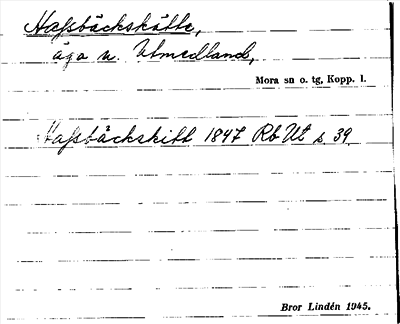 Hafsbäckskätte,
äga n. Utmedland,
Mora sn o. tg, Kopp. l.
Hafsbäckskitt 1847 Rb Ut s. 39.
Bror Lindén 1945.